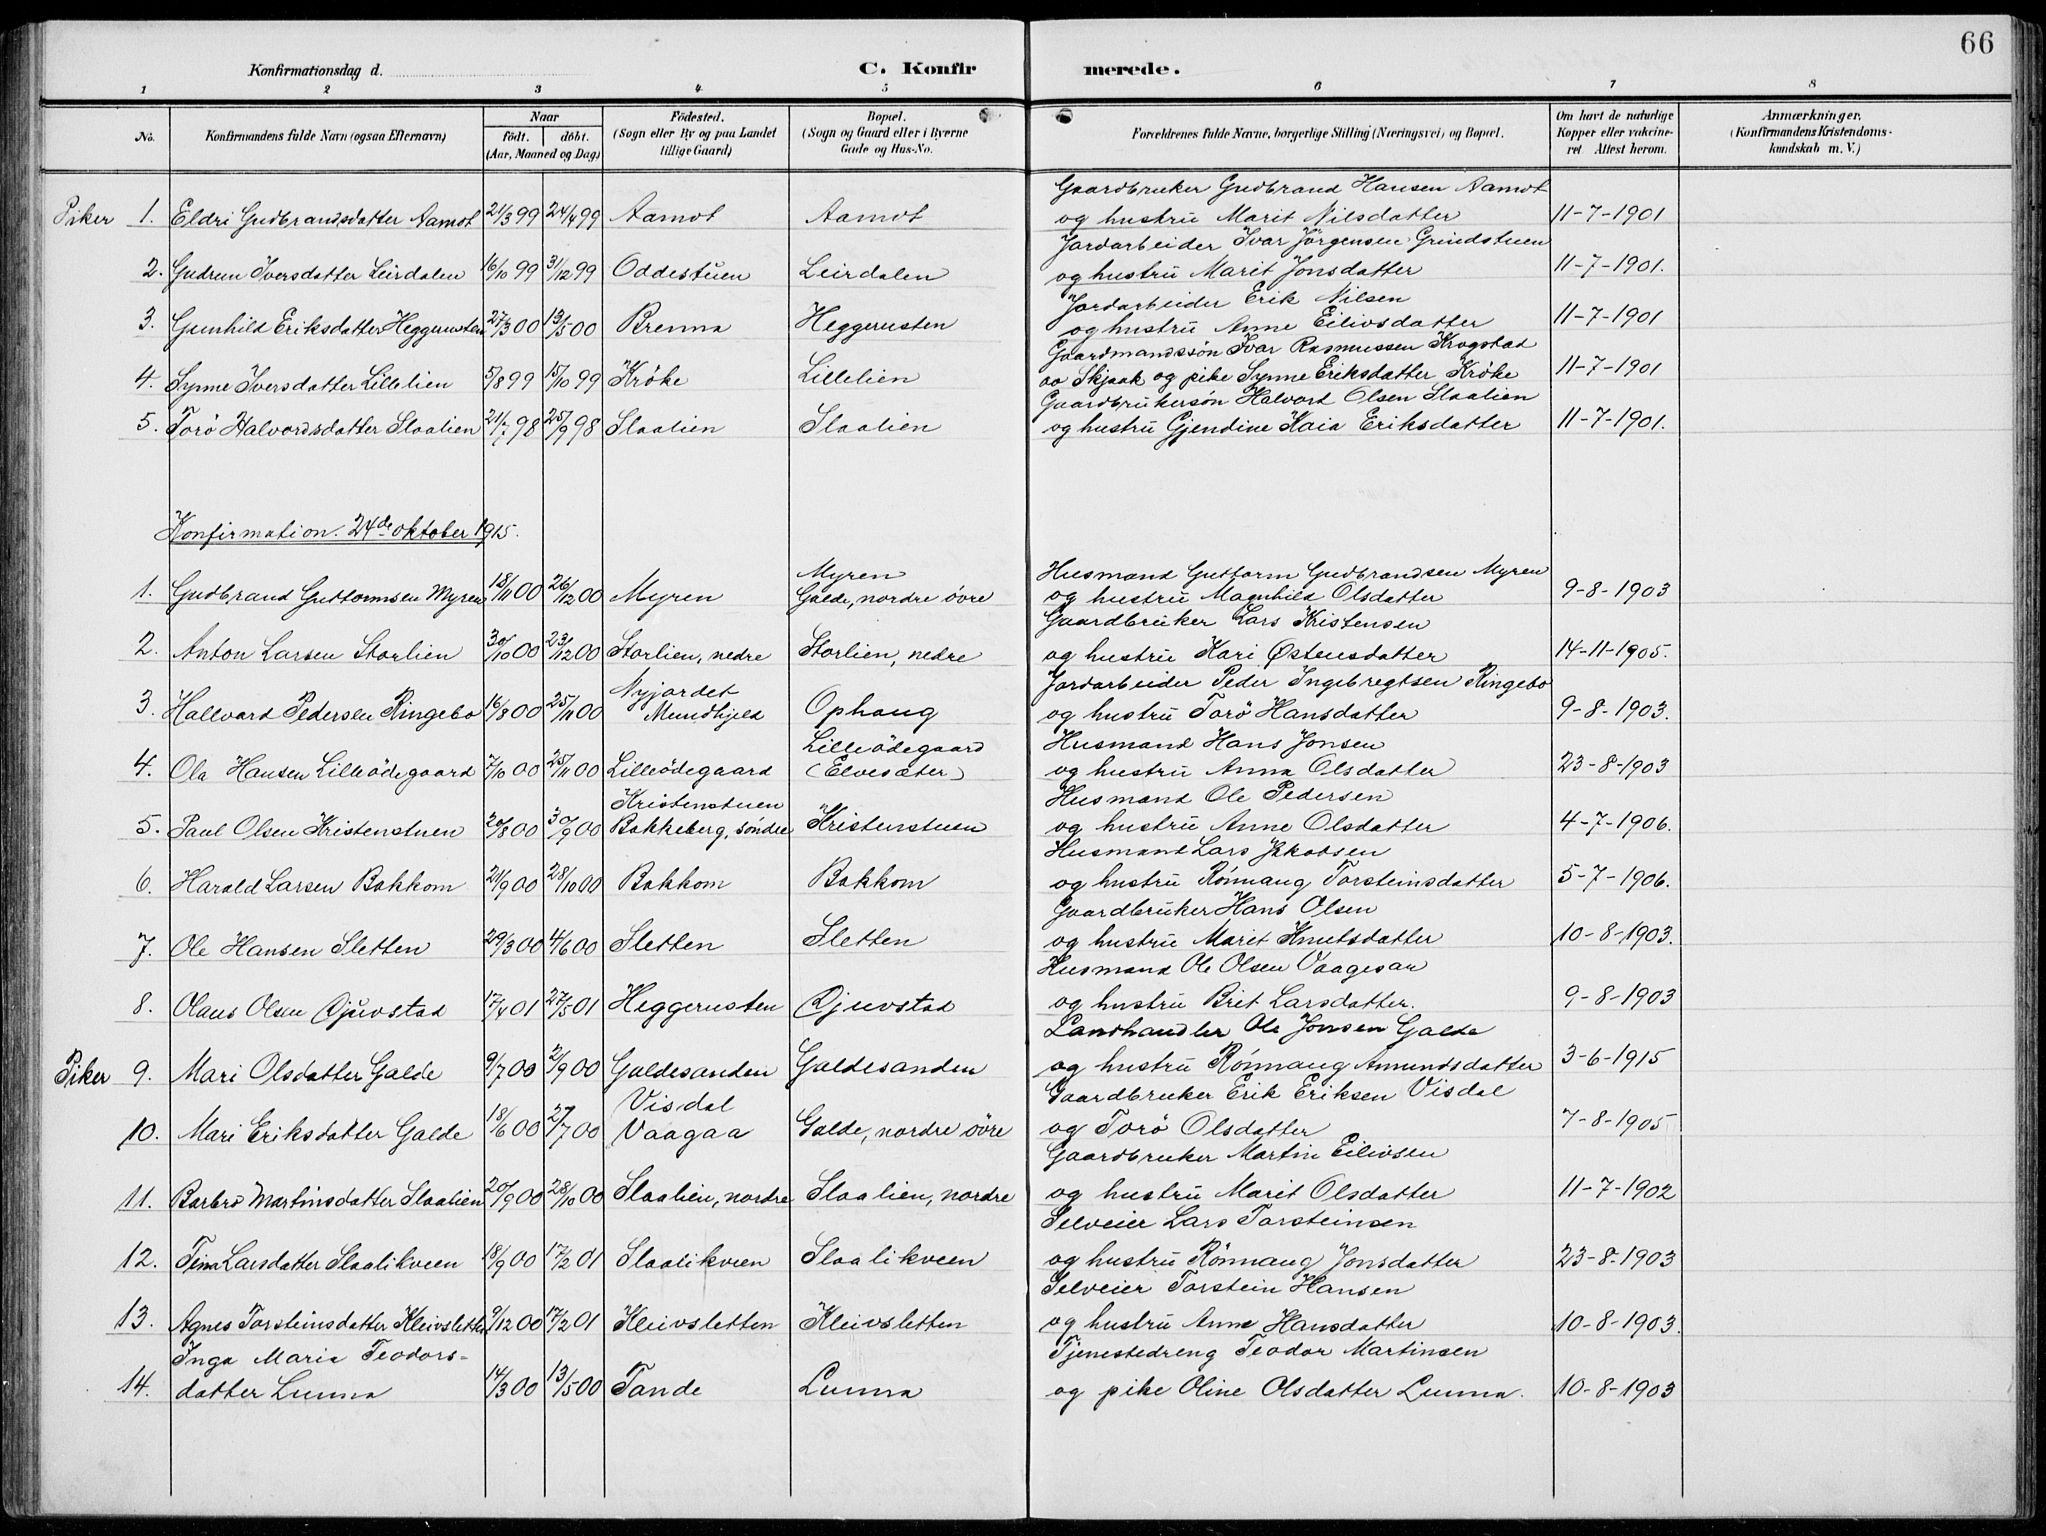 66
Konfirmationsdag d. C. Konfirmerede.
1 2 3 4 5 6 7 8
No. Konfirmandens fulde Navn (ogsaa Efternavn) Naar födt. döbt. (Aar, Maaned og Dag) Födested. (Sogn eller By og paa Landet tillige Gaard) Bopæl. (Sogn og Gaard eller i Byerne Gade og Hus-No. Forældrenes fulde Navne, borgerlige Stilling (Næringsvei) og Bopæl. Om havt de naturlige Kopper eller vakcineret Attest herom. Anmærkninger. (Konfirmandens Kristendomskundskab m. V.)
Gaardbruker Gudbrand Hansen Aamot
Piker 1. Eldri Gudbrandsdatter Aamot 21/3 99 24/4 99 Aamot Aamot og hustru Marit Nilsdatter 11-7-1901
Jordarbeider Ivar Jörgensen Grindstuen
2. Gudrun Iversdatter Leirdalen 16/10 99 31/12 99 Oddestuen Leirdalen og hustru Marit Jonsdatter 11-7-1901.
Jordarbeider Erik Nilsen
3. Gunhild Eriksdatter Heggerusten 27/3 00 13/5 00 Brenna Heggerusten og hustru Anne Eilivsdatter 11-7-1901
Gaardmandssön Ivar Rasmussen Krogstad
4. Synne Iversdatter Lillelien 5/8 99 15/10 99 Kröke Lillelien av Skjaak og pike Synne Eriksdatter Kröke 11-7-1901
Gaardbrukersön Halvord Olsen Slaalien
5. Torö Halvordsdatter Slaalien 21/7 98 25/9 98 Slaalien Slaalien og hustru Gjendine Kaia Eriksdatter 11-7-1901.
Konfirmation. 24de oktober 1915.
Myren Husmand Guttorm Gudbrandsen Myren
1. Gudbrand Guttormsen Myren 18/11 00 26/12 00 Myren Galde, nordre övre og hustru Magnhild Olsdatter 9-8-1903
Gaardbruker Lars Kristensen
2. Anton Larsen Storlien 30/10 00 23/12 00 Storlien, nedre Storlien, nedre og hustru Kari Østensdatter 14-11-1905.
Nyjordet Jordarbeider Peder Ingebregtsen Ringebo
3. Hallvard Pedersen Ringebo 16/8 00 25/11 00 Mundhjeld Ophaug og hustru Torö Hansdatter 9-8-1903.
Lilleödegaard Husmand Hans Jonsen
4. Ola Hansen Lilleödegaard 7/10 00 25/11 00 Lilleödegaard (Elvesæter) og hustru Anna Olsdatter 23-8-1903
Kristenstuen Husmand Ole Pedersen
5. Paul Olsen Kristenstuen 20/8 00 30/9 00 Bakkeberg, söndre Kristenstuen og hustru Anne Olsdatter 4-7-1906.
Husmand Lars Jakobsen
6. Harald Larsen Bakkom 21/9 00 28/10 00 Bakkom Bakkom og hustru Rönnaug Torsteinsdatter 5-7-1906.
Gaardbruker Hans Olsen
7. Ole Hansen Sletten 29/3 00 4/6 00 Sletten Sletten og hustru Marit Knutsdatter 10-8-1903.
Husmand Ole Olsen Vaagesar
8. Olaus Olsen Djuvstad 17/4 01 27/5 01 Heggerusten Djuvstad og hustru Brit Larsdatter. 9-8-1903
Landhandler Ole Jonsen Galde
Piker 9. Mari Olsdatter Galde 9/7 00 2/9 00 Galdesanden Galdesanden og hustru Rönnaug Amundsdatter 3-6-1915
Visdal Gaardbruker Erik Eriksen Visdal
10. Mari Eriksdatter Galde 18/6 00 27/7 00 Vaagaa Galde, nordre övre og Torö Olsdatter 7-8-1905
Gaardbruker Martin Eilivsen
11. Barbro Martinsdatter Slaalien 20/9 00 28/10 00 Slaalien, nordre Slaalien, nordre og hustru Marit Olsdatter 11-7-1902
Selveier Lars Torsteinsen
12. Tina Larsdatter Slaalikveen 18/9 00 17/2 01 Slaalikveen Slaalikveen og hustru Rönnaug Jonsdatter 23-8-1903
Selveier Torstein Hansen
13. Agnes Torsteinsdatter Kleivsletten 9/12 00 17/2 01 Kleivsletten Kleivsletten og hustru Anne Hansdatter 10-8-1903.
Inga Maria Teodors- Tjenestedreng Teodor Martinsen
14. datter Lunna 14/3 00 13/5 00 Tande Lunna og pike Oline Olsdatter Lunna. 10-8-1903